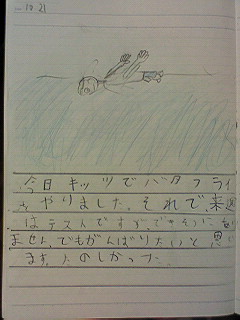 10.21
今日キッツでバタフライ
をやりました。それで、来週
はテストですが、できそうにあり
ません。でもがんばりたいと思い
ます。たのしかった。